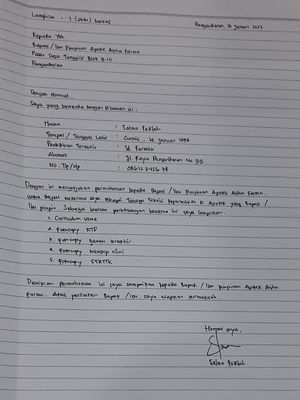 Lampiran : 1 (satu) berkas
Pangandaran, 16 Januari 2023
Kepada Yth
Bapak / Ibu Pimpinan Apotek Aisha Farma
Pasar Desa Blok B.10
Pangandaran
Dengan Hormat,
Saya yang bertanda tangan dibawah ini :
Nama : Salma Fadilah
Tempat / Tanggal Lahir : Ciamis, 14 Januari 1999
Pendidikan Terakhir : D3 Farmasi
Alamat : Jl. Raya Pangandaran No 313
NO. Tlp/Hp : 08612345678
Dengan ini mengajukan permohonan kepada Bapak / Ibu Pimpinan Apotek Aisha Farma,
untuk dapat menerima saya sebagai Tenaga Teknis Kefarmasian di Apotek yang Bapak /
Ibu pimpin. Sebagai bahan pertimbangan bersama ini saya lampirkan:
1. Curiculum Vitae
2. Fotocopy KTP
3. Fotocopy Ijazah terakhir
4. Fotocopy transkip nilai
5. Fotocopy STRTTK
Demikian permohonan ini saya sampaikan kepada Bapak / Ibu Pimpinan Apotek Aisha
Farma. Atas perhatian Bapak / Ibu, saya ucapkan terimakasih.
Hormat saya,
Salma Fadilah